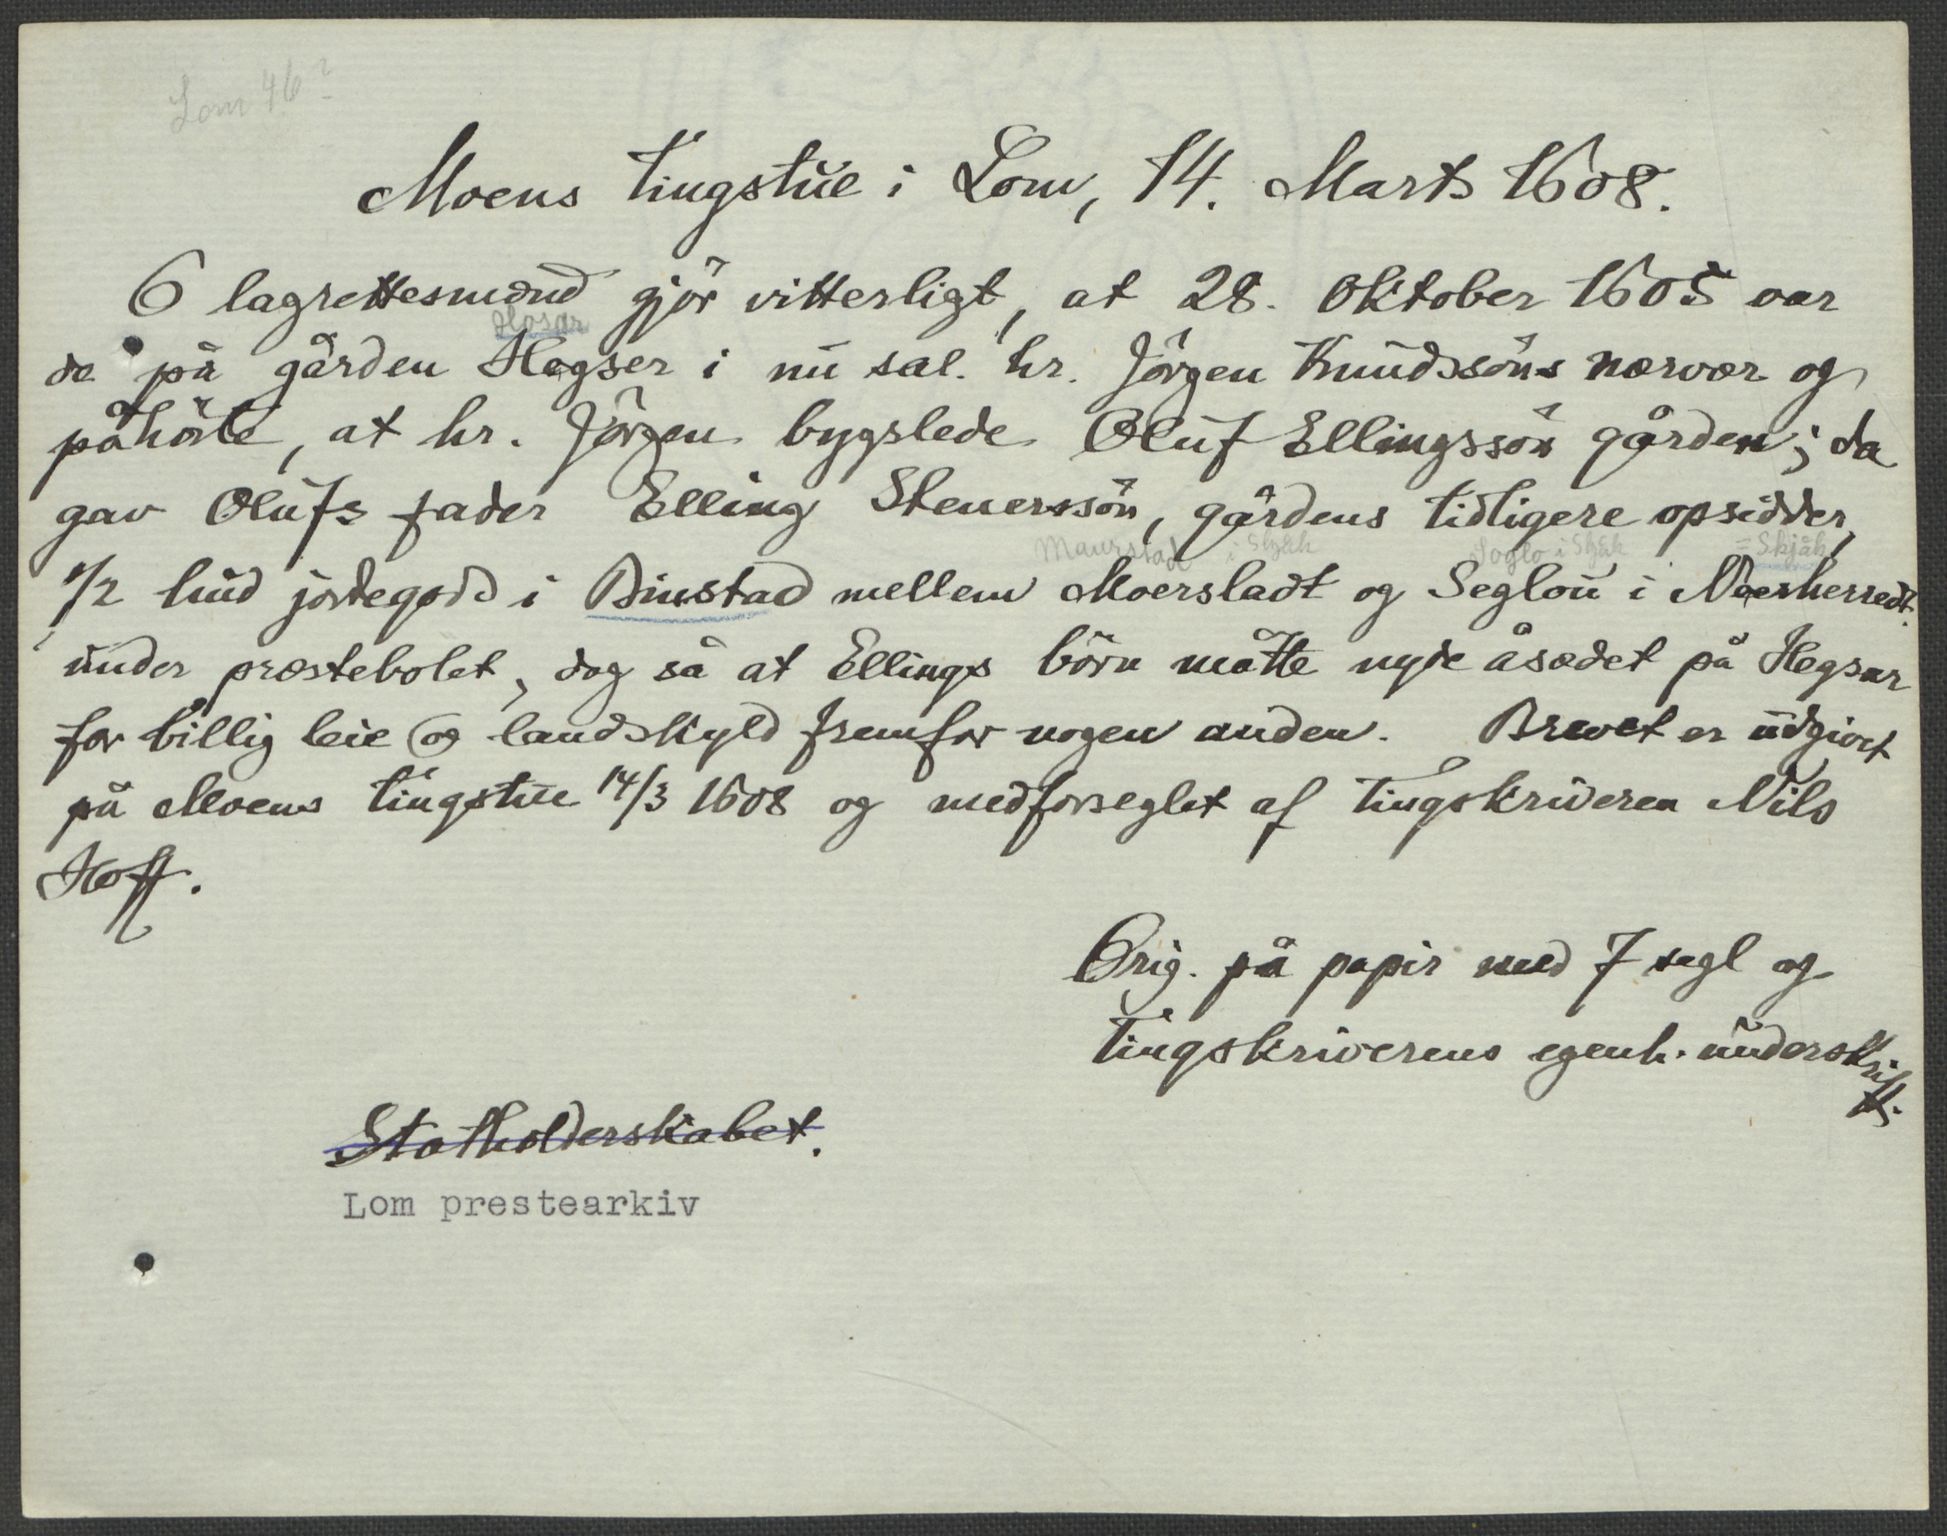 Lom 46?
Moens tingstue i Lom, 14. Marts 1608.
6 lagrettesmænd gjör vitterligt, at 28. Oktober 1605 var
Hosar
de på gården Hegser i nu sal. hr. Jörgen Knudssöns nærvær og
påhörte, at hr. Jörgen bygslede Oluf Ellingssön gården; da
gav Olufs fader Elling Stenerssön, gårdens tidligere opsidder,
Maurstad i Skjåk Soglo i Skjåk = Skjåk
1/2 hud jordegods i Binstad mellem Moerstadt og Seglou i Noerherredt.
under præstebolet, dog så at Ellings börn måtte nyde åsædet på Hegsar
for billig leie og landskyld fremfor nogen anden. Brevet er udgivet
på Moens tingstue 14/3 1608 og medforseglet af tingskriveren Nils
Hoff.
Orig. på papir med 7 segl og
tingskriverens egenh. underskrift.
Statholderskabet.
Lom prestearkiv